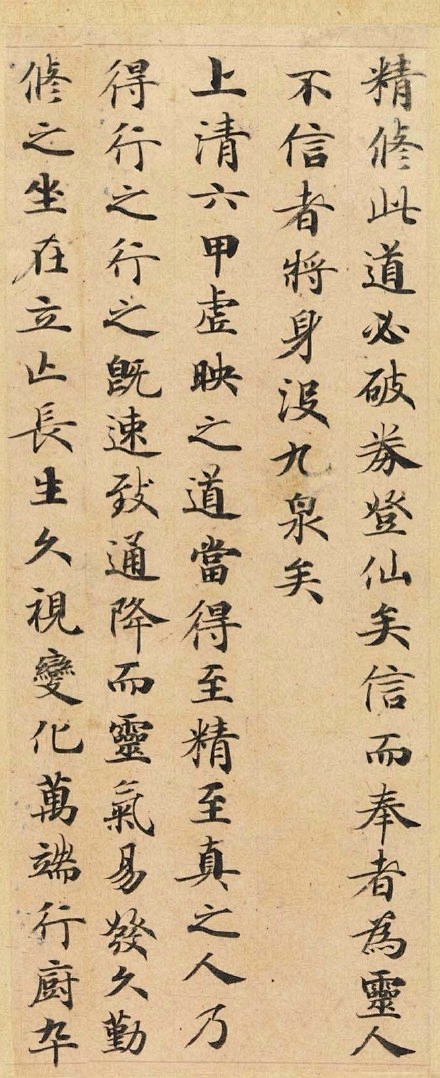 精修此道必破券登仙矣信而奉者為靈人
不信者將身没九泉矣
上清六甲虚映之道當得至精至真之人乃
得行之行之既速致通降而靈氣易發久勤
修之坐在立亡長生久視變化萬端行廚卒